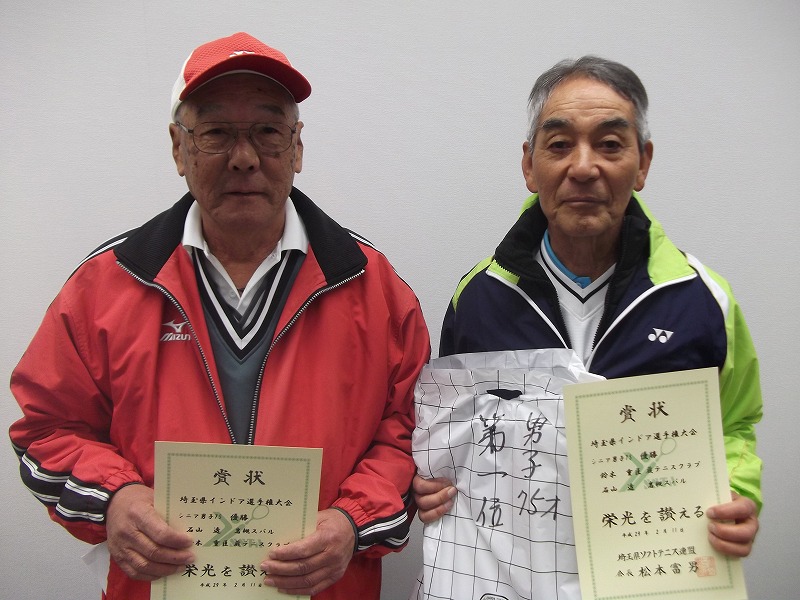 MIZUNO
賞状
埼玉県インドア選手権大会
シニア男子75 優勝
石山
岩槻スバル
テニスクラブ
栄光を讃える
平成29年2月11日
男子75才
第一位
賞状
埼玉県インドア選手権大会
シニア男子75 優勝
鈴木 重 蕨テニスクラブ
石山 岩槻スバル
栄光を讃える
平成29年2月11日
埼玉県ソフトテニス連盟
会長 松本富男